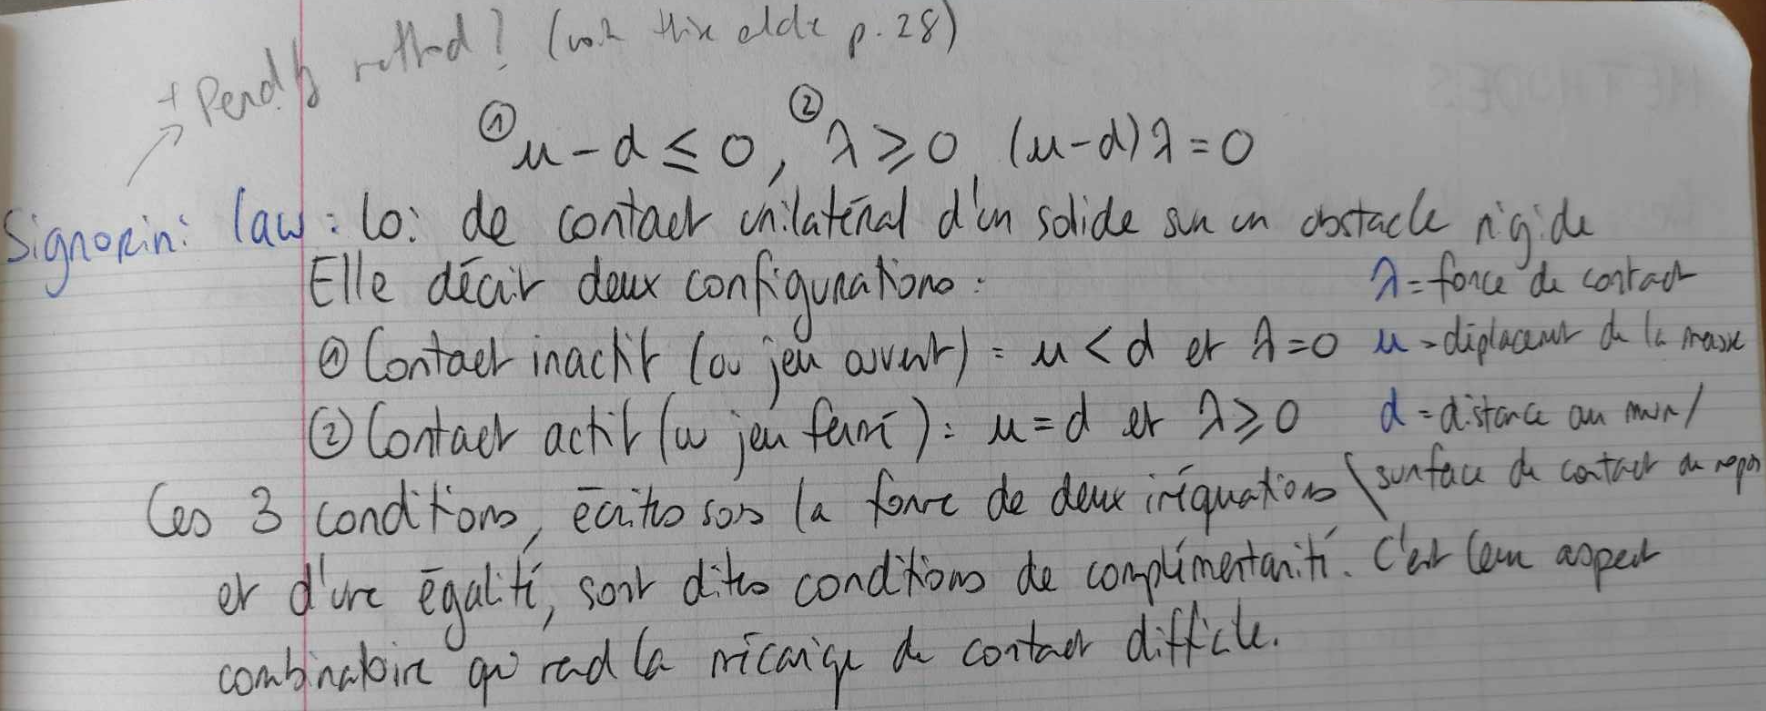 + Penalty method? (voir thèse aldé p. 28)
① u - d ≤ 0, ② λ ≥ 0 (u-d) λ = 0
Signorini law : loi de contact unilatéral d'un solide sur un obstacle rigide
Elle décrit deux configurations :
λ = force de contact
① Contact inactif (ou jeu ouvert) : u < d et λ = 0
u = déplacement de la masse
② Contact actif (ou jeu fermé) : u = d et λ ≥ 0
d = distance au mur /
surface de contact au repos
Ces 3 conditions, écrites sous la forme de deux inéquations
et d'une égalité, sont dites conditions de complémentarité. C'est leur aspect
combinatoire qui rend la mécanique du contact difficile.